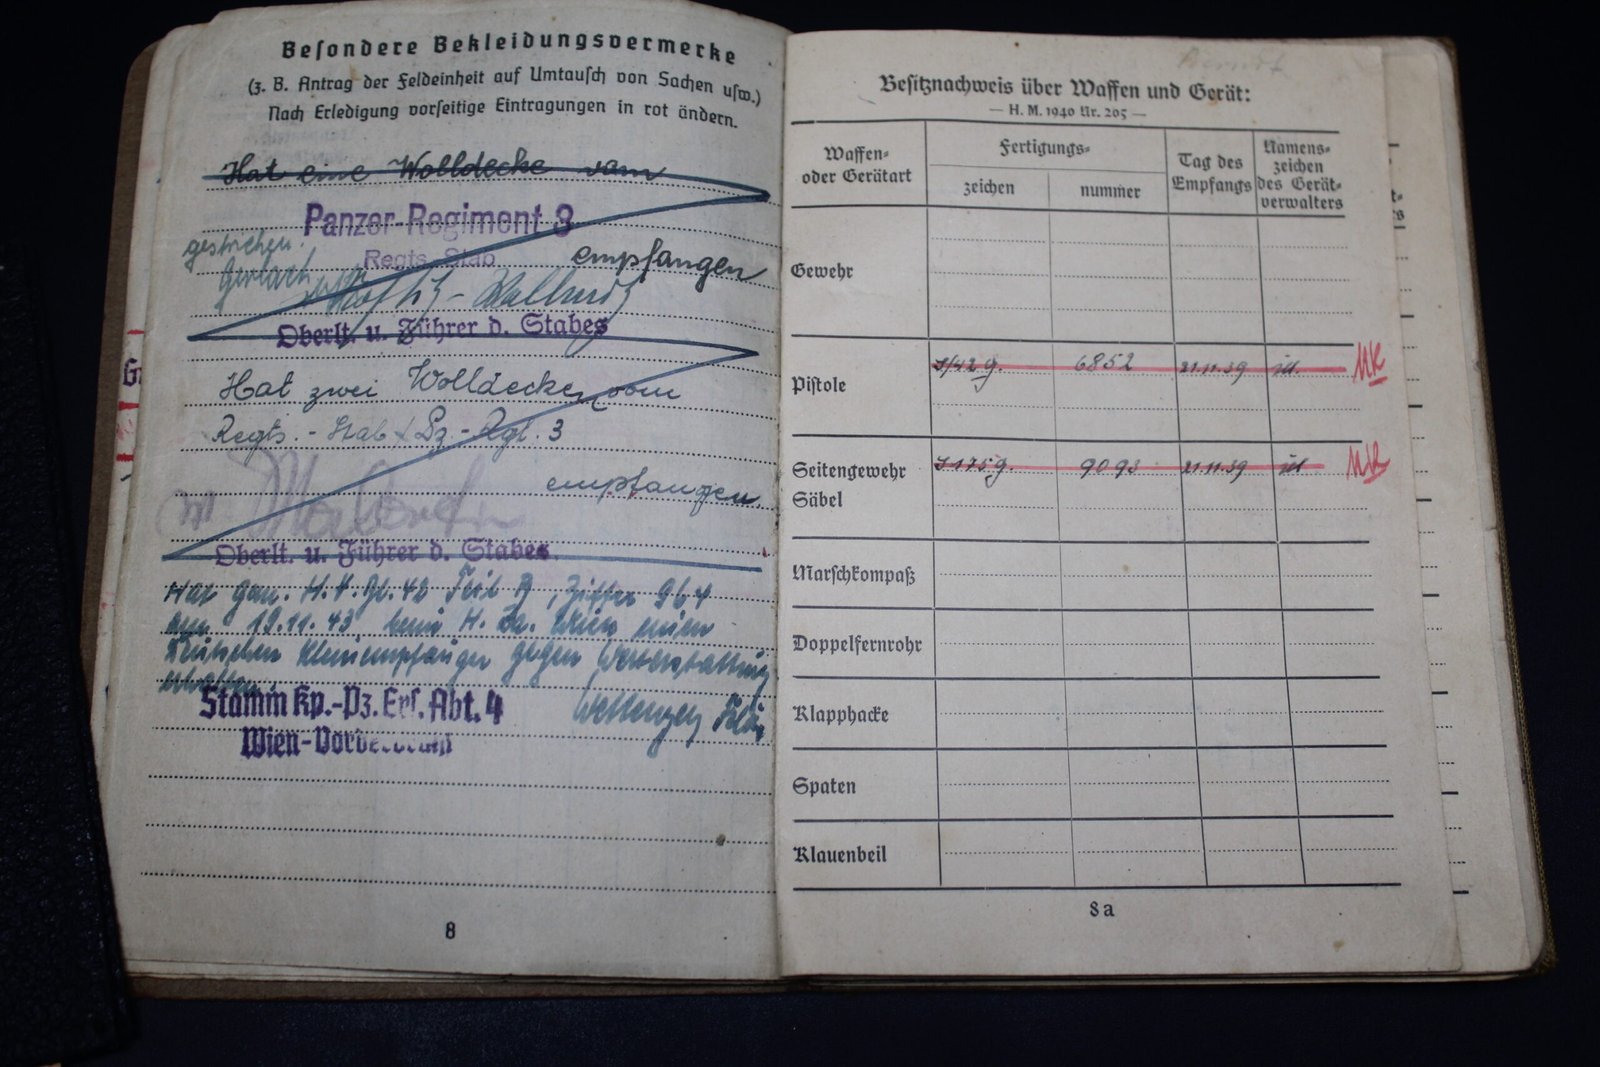 Besondere Bekleidungsvermerke
(z. B. Antrag der Feldeinheit auf Umtausch von Sachen usw.)
Nach Erledigung vorseitige Eintragungen in rot ändern.
Hat eine Wolldecke vom
Panzer-Regiment 3
gestrichen.
Regts. Stab
empfangen
Gerlach
Oberlt. u. Führer d. Stabes
Hat zwei Wolldecken vom
Regts. - Stab Pz. - Rgt. 3
empfangen
Oberlt. u. Führer d. Stabes
Hat gem. H.V.Bl. 42 Teil B, Ziffer 964
am 19.11.43 beim H. Wien einen
Deutschen Kleinempfänger gegen Werterstattung
erhalten.
Stamm Kp.-Pz. Ers. Abt. 4
Wien-
8
Besitznachweis über Waffen und Gerät:
— H. M. 1940 Nr. 205 —
Waffen- oder Gerätart
Fertigungs-
zeichen
nummer
Tag des Empfangs
Namens- zeichen des Gerät- verwalters
Gewehr
Pistole S/42 g. 6852 21.11.39
Seitengewehr S 175 g. 9093 21.11.39
Säbel
Marschkompaß
Doppelfernrohr
Klapphacke
Spaten
Klauenbeil
8a